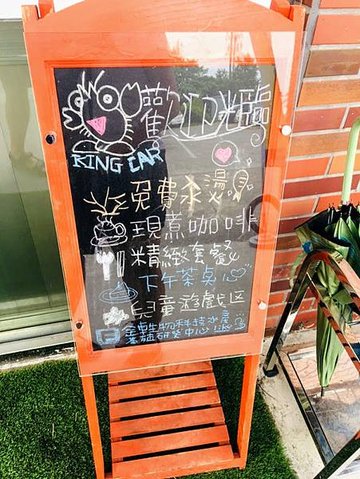 歡迎光臨
KING CAR
免費水燙
現煮咖啡
精緻套餐
下午茶桌
兒童遊戲区
金車生物科技水產
養殖研究中心